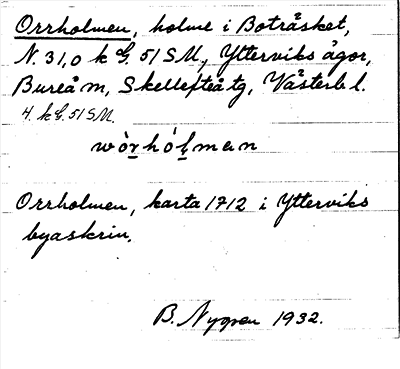 Orrholmen, holme i Boträsket,
N. 31,0 k G. 51 SM., Ytterviks ägor,
Bureå m, Skellefteå tg, Västerb l.
4. k G. 51 SM.
wòrhólman
Orrholmen, karta 1712 i Ytterviks
byaskrin.
B. Nygren 1932.